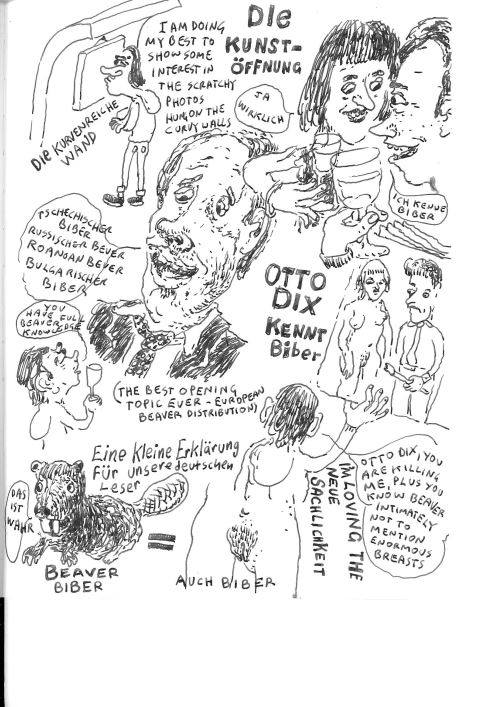 I AM DOING
MY BEST TO
SHOW SOME
INTEREST IN
THE SCRATCHY
PHOTOS
HUNG ON THE
CURVY WALLS
DIE
KUNST-
ÖFFNUNG
JA
WIRKLICH
DIE KURVENREICHE
WAND
ICH KENNE
BIBER
TSCHECHISCHER
BIBER
RUSSISCHER BEVER
ROANOAN BEVER
BULGARISCHER
BIBER
OTTO
DIX
KENNT
Biber
YOU
HAVE FULL
BEAVER
KNOWLEDGE
(THE BEST OPENING
TOPIC EVER - EUROPEAN
BEAVER DISTRIBUTION)
Eine kleine Erklärung
für unsere deutschen
Leser
DAS
IST
WAHR
BEAVER
BIBER
=
AUCH BIBER
I'M LOVING THE
NEUE
SACHLICHKEIT
OTTO DIX, YOU
ARE KILLING
ME, PLUS YOU
KNOW BEAVER
INTIMATELY
NOT TO
MENTION
ENORMOUS
BREASTS